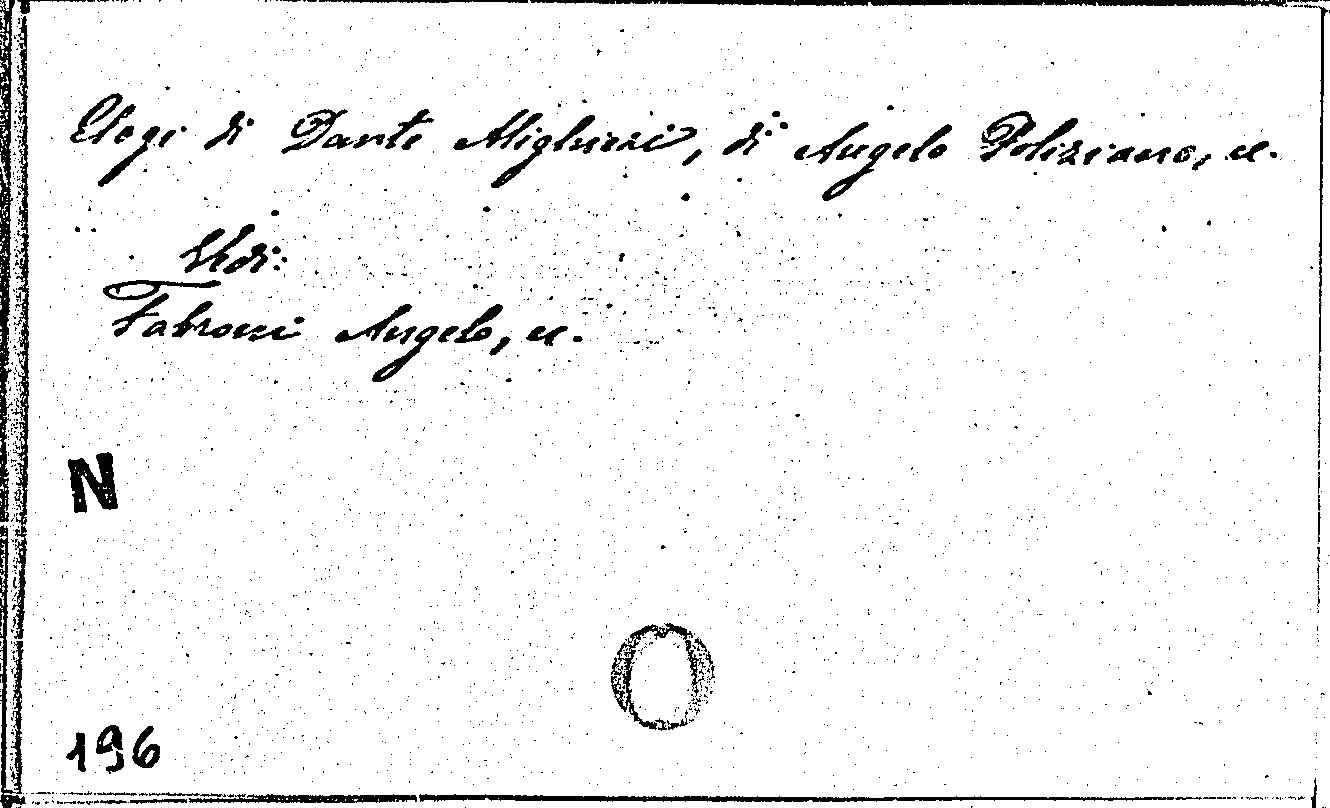 Elogi di Dante Alighieri, di Angelo Poliziano, ec.
Vedi:
Fabroni Angelo, ec.
N
196